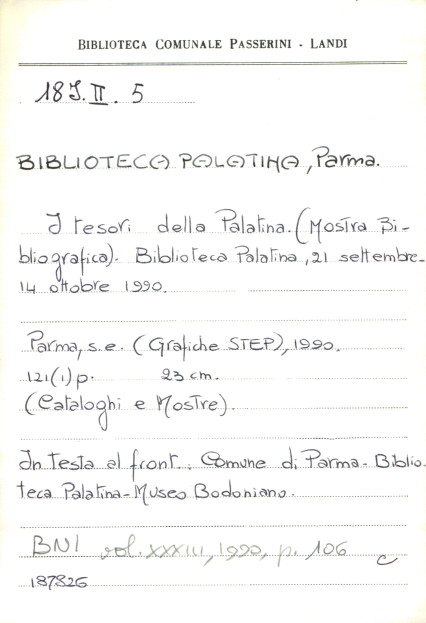 BIBLIOTECA COMUNALE PASSERINI - LANDI
18J.II. 5
BIBLIOTECA PALATINA, Parma.
I tesori della Palatina. (Mostra Bi-
bliografica). Biblioteca Palatina, 21 settembre-
14 ottobre 1990.
Parma, s.e. (Grafiche STEP), 1990.
121(1) p. 23 cm.
(Cataloghi e Mostre).
In testa al front.: Comune di Parma-Biblio.
teca Palatina-Museo Bodoniano.
BNI vol. XXXIII, 1990, p. 106 c
187826